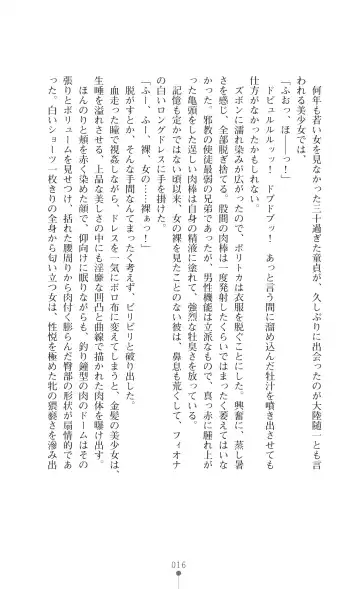 何年も若い女を見なかった三十過ぎた童貞が、久しぶりに出会ったのが大陸随一とも言
われる美少女では、
「ふおっ、ほ――っ！」
　ドビュルルルッッ！　ドブドブッ！　あっと言う間に溜め込んだ牡汁を噴き出させても
仕方がなかったかもしれない。
　ズボンに濡れ染みが広がったので、ボリトカは衣服を脱ぐことにした。興奮に、蒸し暑
さを感じ、全部脱ぎ捨てる。股間の肉棒は一度発射したくらいではまったく萎えてはいな
かった。邪教の使徒最弱の兄弟であったが、男性機能は立派なもので、真っ赤に腫れ上が
った亀頭をした逞しい肉棒は自身の精液に塗れて、強烈な牡臭さを放っている。
　記憶も定かではない頃以来、女の裸を見たことのない彼は、鼻息も荒くして、フィオナ
の白いロングドレスに手を掛けた。
「ふー、ふー、裸、女の……裸ぁっ！」
　脱がすとか、そんな手間なんてまったく考えず、ビリビリと破り出した。
　血走った瞳で視姦しながら、ドレスを一気にボロ布に変えてしまうと、金髪の美少女は、
生唾を溢れさせる、上品な美しさの中にも淫靡な凹凸と曲線で描かれた肉体を曝け出す。
　ほんのりと頬を赤く染めた顔で、仰向けに眠りながらも、釣り鐘型の肉のドームはその
張りとボリュームを見せつけ、括れた腰周りから肉付く膨らんだ臀部の形状が扇情的であ
った。白いショーツ一枚きりの全身から匂い立つ女は、性悦を極めた牝の猥褻さを滲み出
016